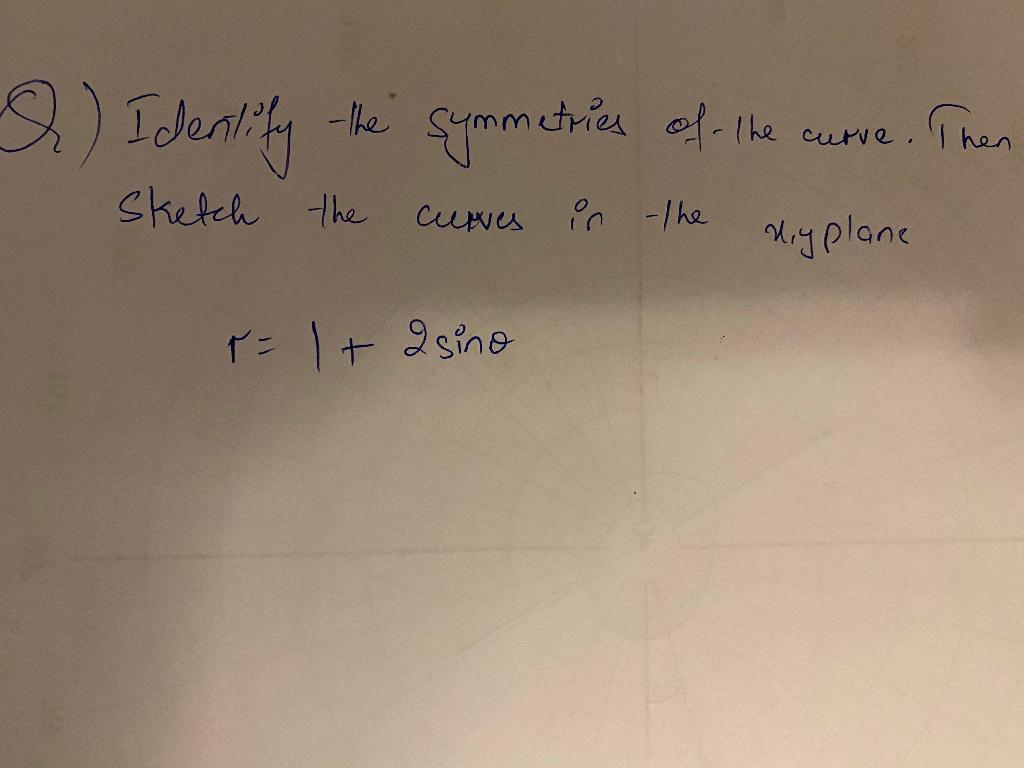 Q) Identify the symmetries of the curve. Then
Sketch the curves in the x,y plane
r = 1 + 2 sinθ